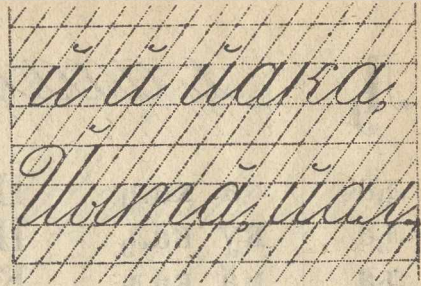 й й йака,
Йытӑ, йал,